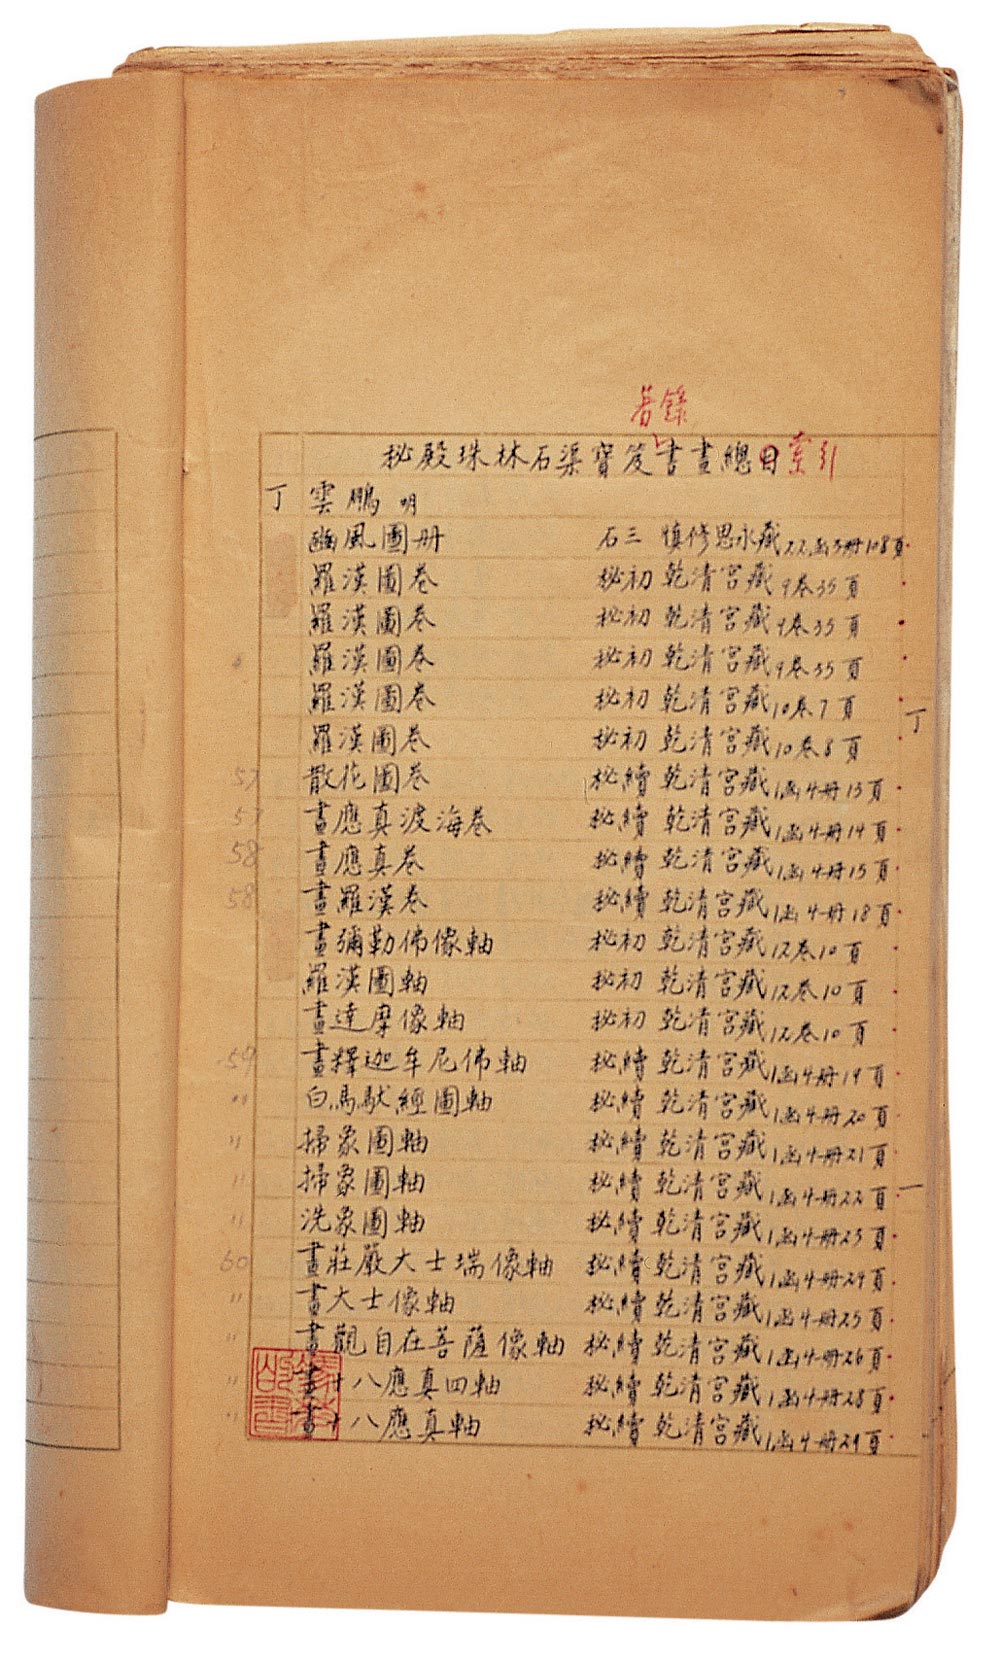 著錄
秘殿珠林石渠寶笈書畫總目索引
丁雲鵬 明
豳風圖册 石三 慎修思永藏22函3册108頁
羅漢圖卷 秘初 乾清宮藏9卷35頁
羅漢圖卷 秘初 乾清宮藏9卷35頁
羅漢圖卷 秘初 乾清宮藏9卷35頁
羅漢圖卷 秘初 乾清宮藏10卷7頁
丁
羅漢圖卷 秘初 乾清宮藏10卷8頁
57 散花圖卷 秘續 乾清宮藏1函4册13頁
57 畫應真渡海卷 秘續 乾清宮藏1函4册14頁
58 畫應真卷 秘續 乾清宮藏1函4册15頁
58 畫羅漢卷 秘續 乾清宮藏1函4册18頁
畫彌勒佛像軸 秘初 乾清宮藏12卷10頁
羅漢圖軸 秘初 乾清宮藏12卷10頁
畫達摩像軸 秘初 乾清宮藏12卷10頁
59 畫釋迦牟尼佛軸 秘續 乾清宮藏1函4册19頁
〃 白馬馱經圖軸 秘續 乾清宮藏1函4册20頁
〃 掃象圖軸 秘續 乾清宮藏1函4册21頁
〃 掃象圖軸 秘續 乾清宮藏1函4册22頁
一
〃 洗象圖軸 秘續 乾清宮藏1函4册23頁
60 畫莊嚴大士瑞像軸 秘續 乾清宮藏1函4册24頁
〃 畫大士像軸 秘續 乾清宮藏1函4册25頁
〃 畫觀自在菩薩像軸 秘續 乾清宮藏1函4册26頁
〃 畫十八應真四軸 秘續 乾清宮藏1函4册28頁
〃 畫十八應真軸 秘續 乾清宮藏1函4册29頁